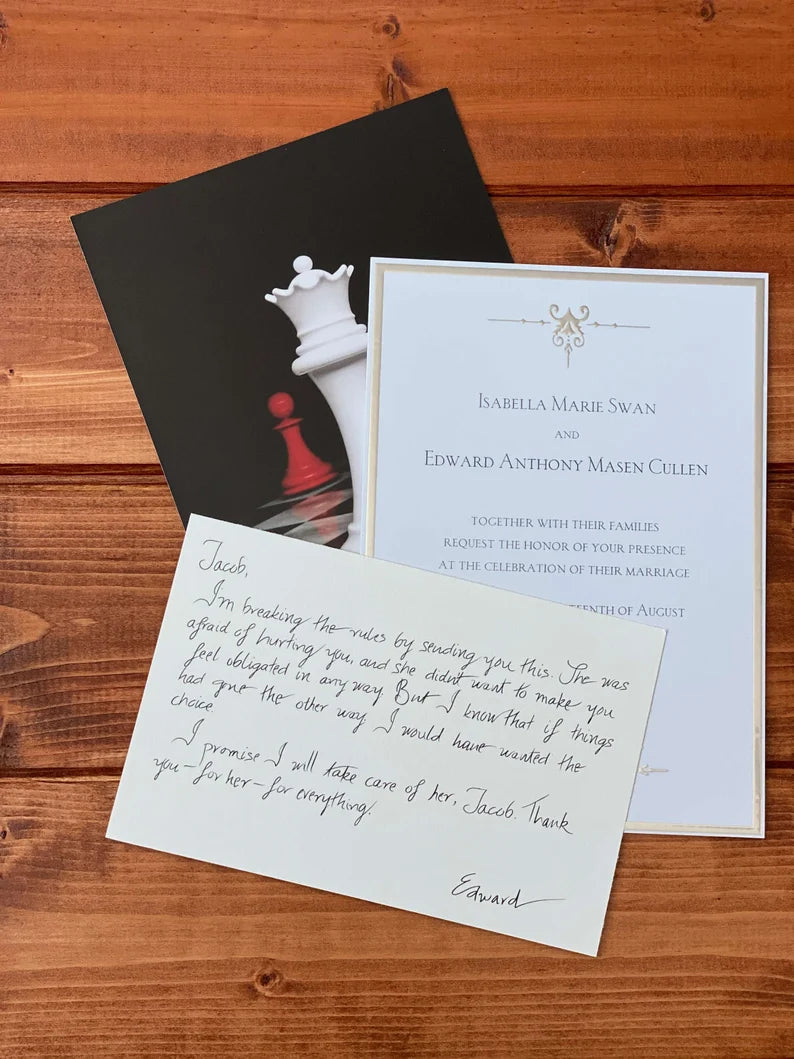 Isabella Marie Swan
and
Edward Anthony Masen Cullen
together with their families
request the honor of your presence
at the celebration of their marriage
of August
Jacob,
I'm breaking the rules by sending you this. She was
afraid of hurting you, and she didn't want to make you
feel obligated in any way. But I know that if things
had gone the other way, I would have wanted the
choice.
I promise I will take care of her, Jacob. Thank
you – for her – for everything.
Edward